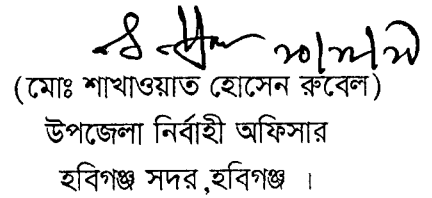 (মোঃ শাখাওয়াত হোসেন রুবেল)
উপজেলা নির্বাহী অফিসার
হবিগঞ্জ সদর,হবিগঞ্জ ।